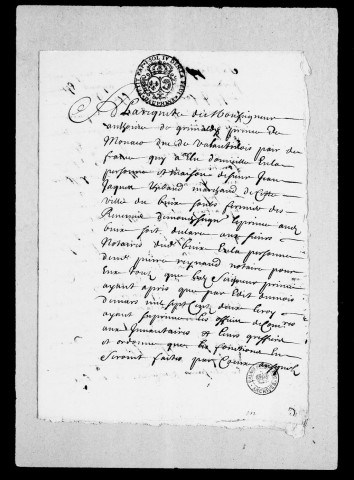 A la requete de Monseigneur
anthoine de grimaldy prince de
Monaco duc de valantinois pair de
france quy a Elu domicille En la
personne et maison de sieur Jean
Jaques marchand de cette
ville du buix soubs fermier des
Revenus dudit seigneur prince audit
buix soit declare aux sieurs
Notaires dudit buix En la personne
de me pierre reynaud notaire pour
Eux tous que led Seigneur prince
ayant apris que par Edit du mois
de mars mil sept cent deux le roy
ayant suprimé les offices de
aux Inventaires et leurs greffiers
et ordonné que les fonctions En
Seroint faites par Ceux ausquels